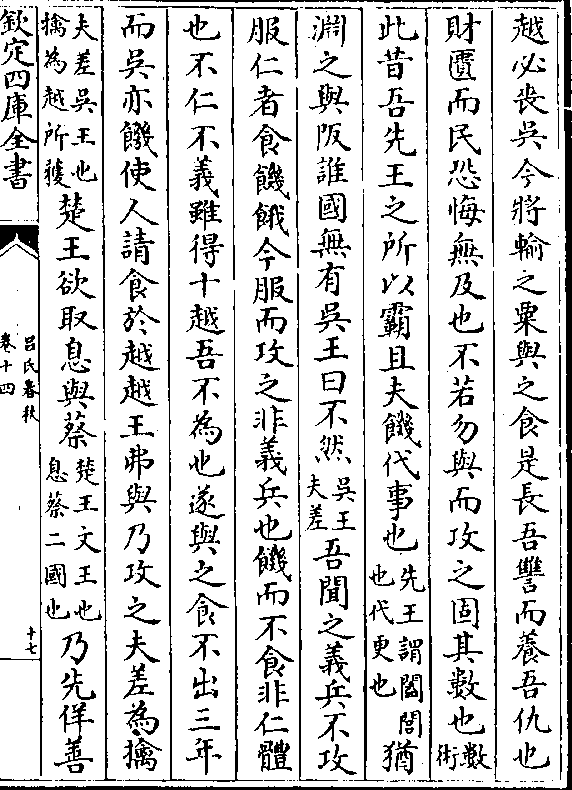 越必喪吳今將輸之粟與之食是長吾讐而養吾仇也
財匱而民恐悔無及也不若勿與而攻之固其數也數術
此昔吾先王之所以霸且夫饑代事也先王謂闔閭也代更也猶
淵之與阪誰國無有吳王曰不然吳王夫差吾聞之義兵不攻
服仁者食饑餓今服而攻之非義兵也饑而不食非仁體
也不仁不義雖得十越吾不為也遂與之食不出三年
而吳亦饑使人請食於越越王弗與乃攻之夫差為擒
夫差吳王也擒為越所獲楚王欲取息與蔡楚王文王也息蔡二國也乃先佯善
欽定四庫全書
呂氏春秋
卷十四
十七